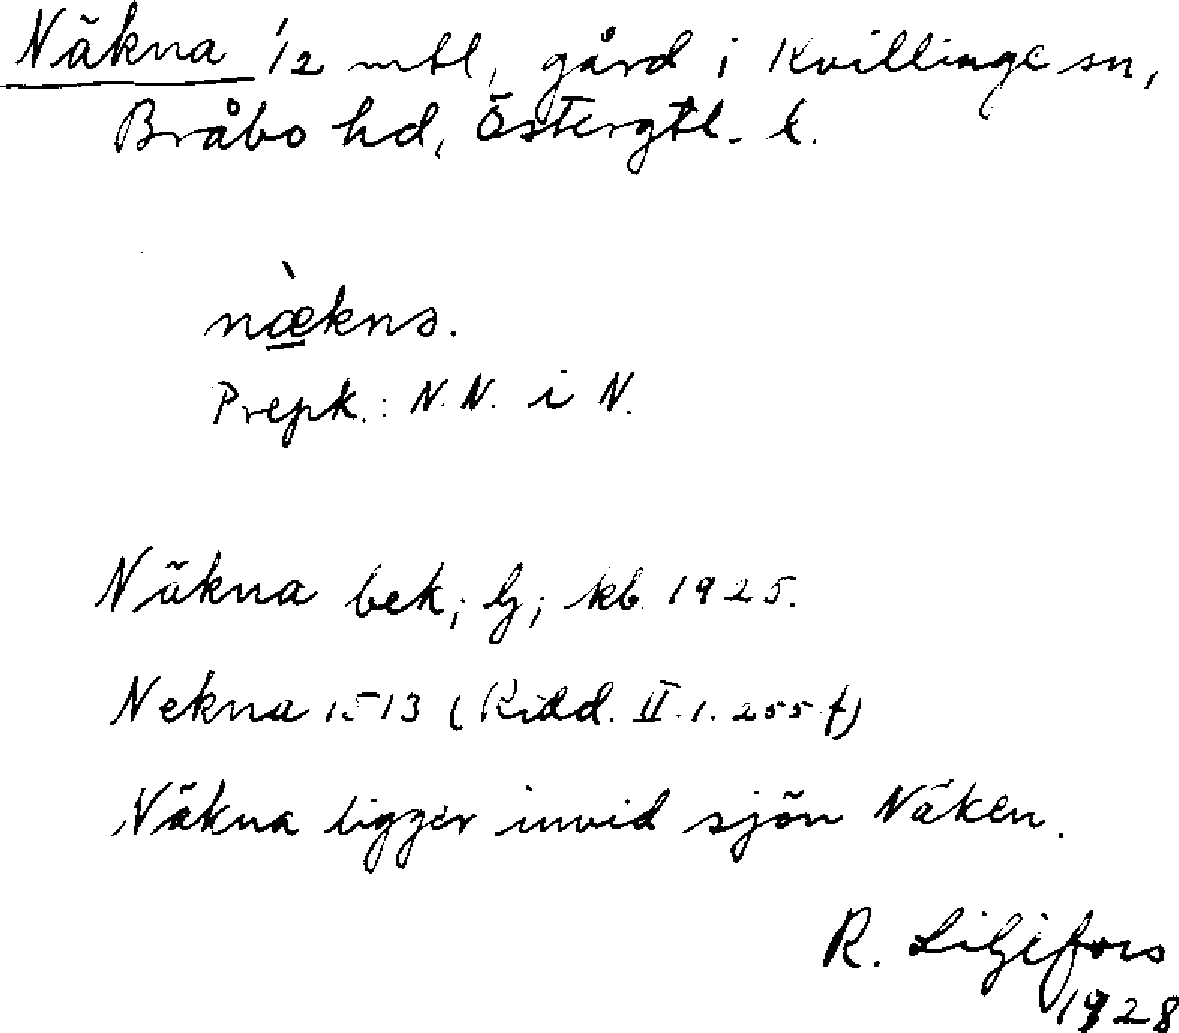 Näkna 1/2 mtl, gård i Kvillinge sn,
Bråbo hd, Östergtl. l.
nækna.
Prepk.: N.N. i N.
Näkna bek; lj; kb 1925.
Nekna 1513 (Ridd. II.1.255 f)
Näkna ligger invid sjön Näken.
R. Liljefors
1928